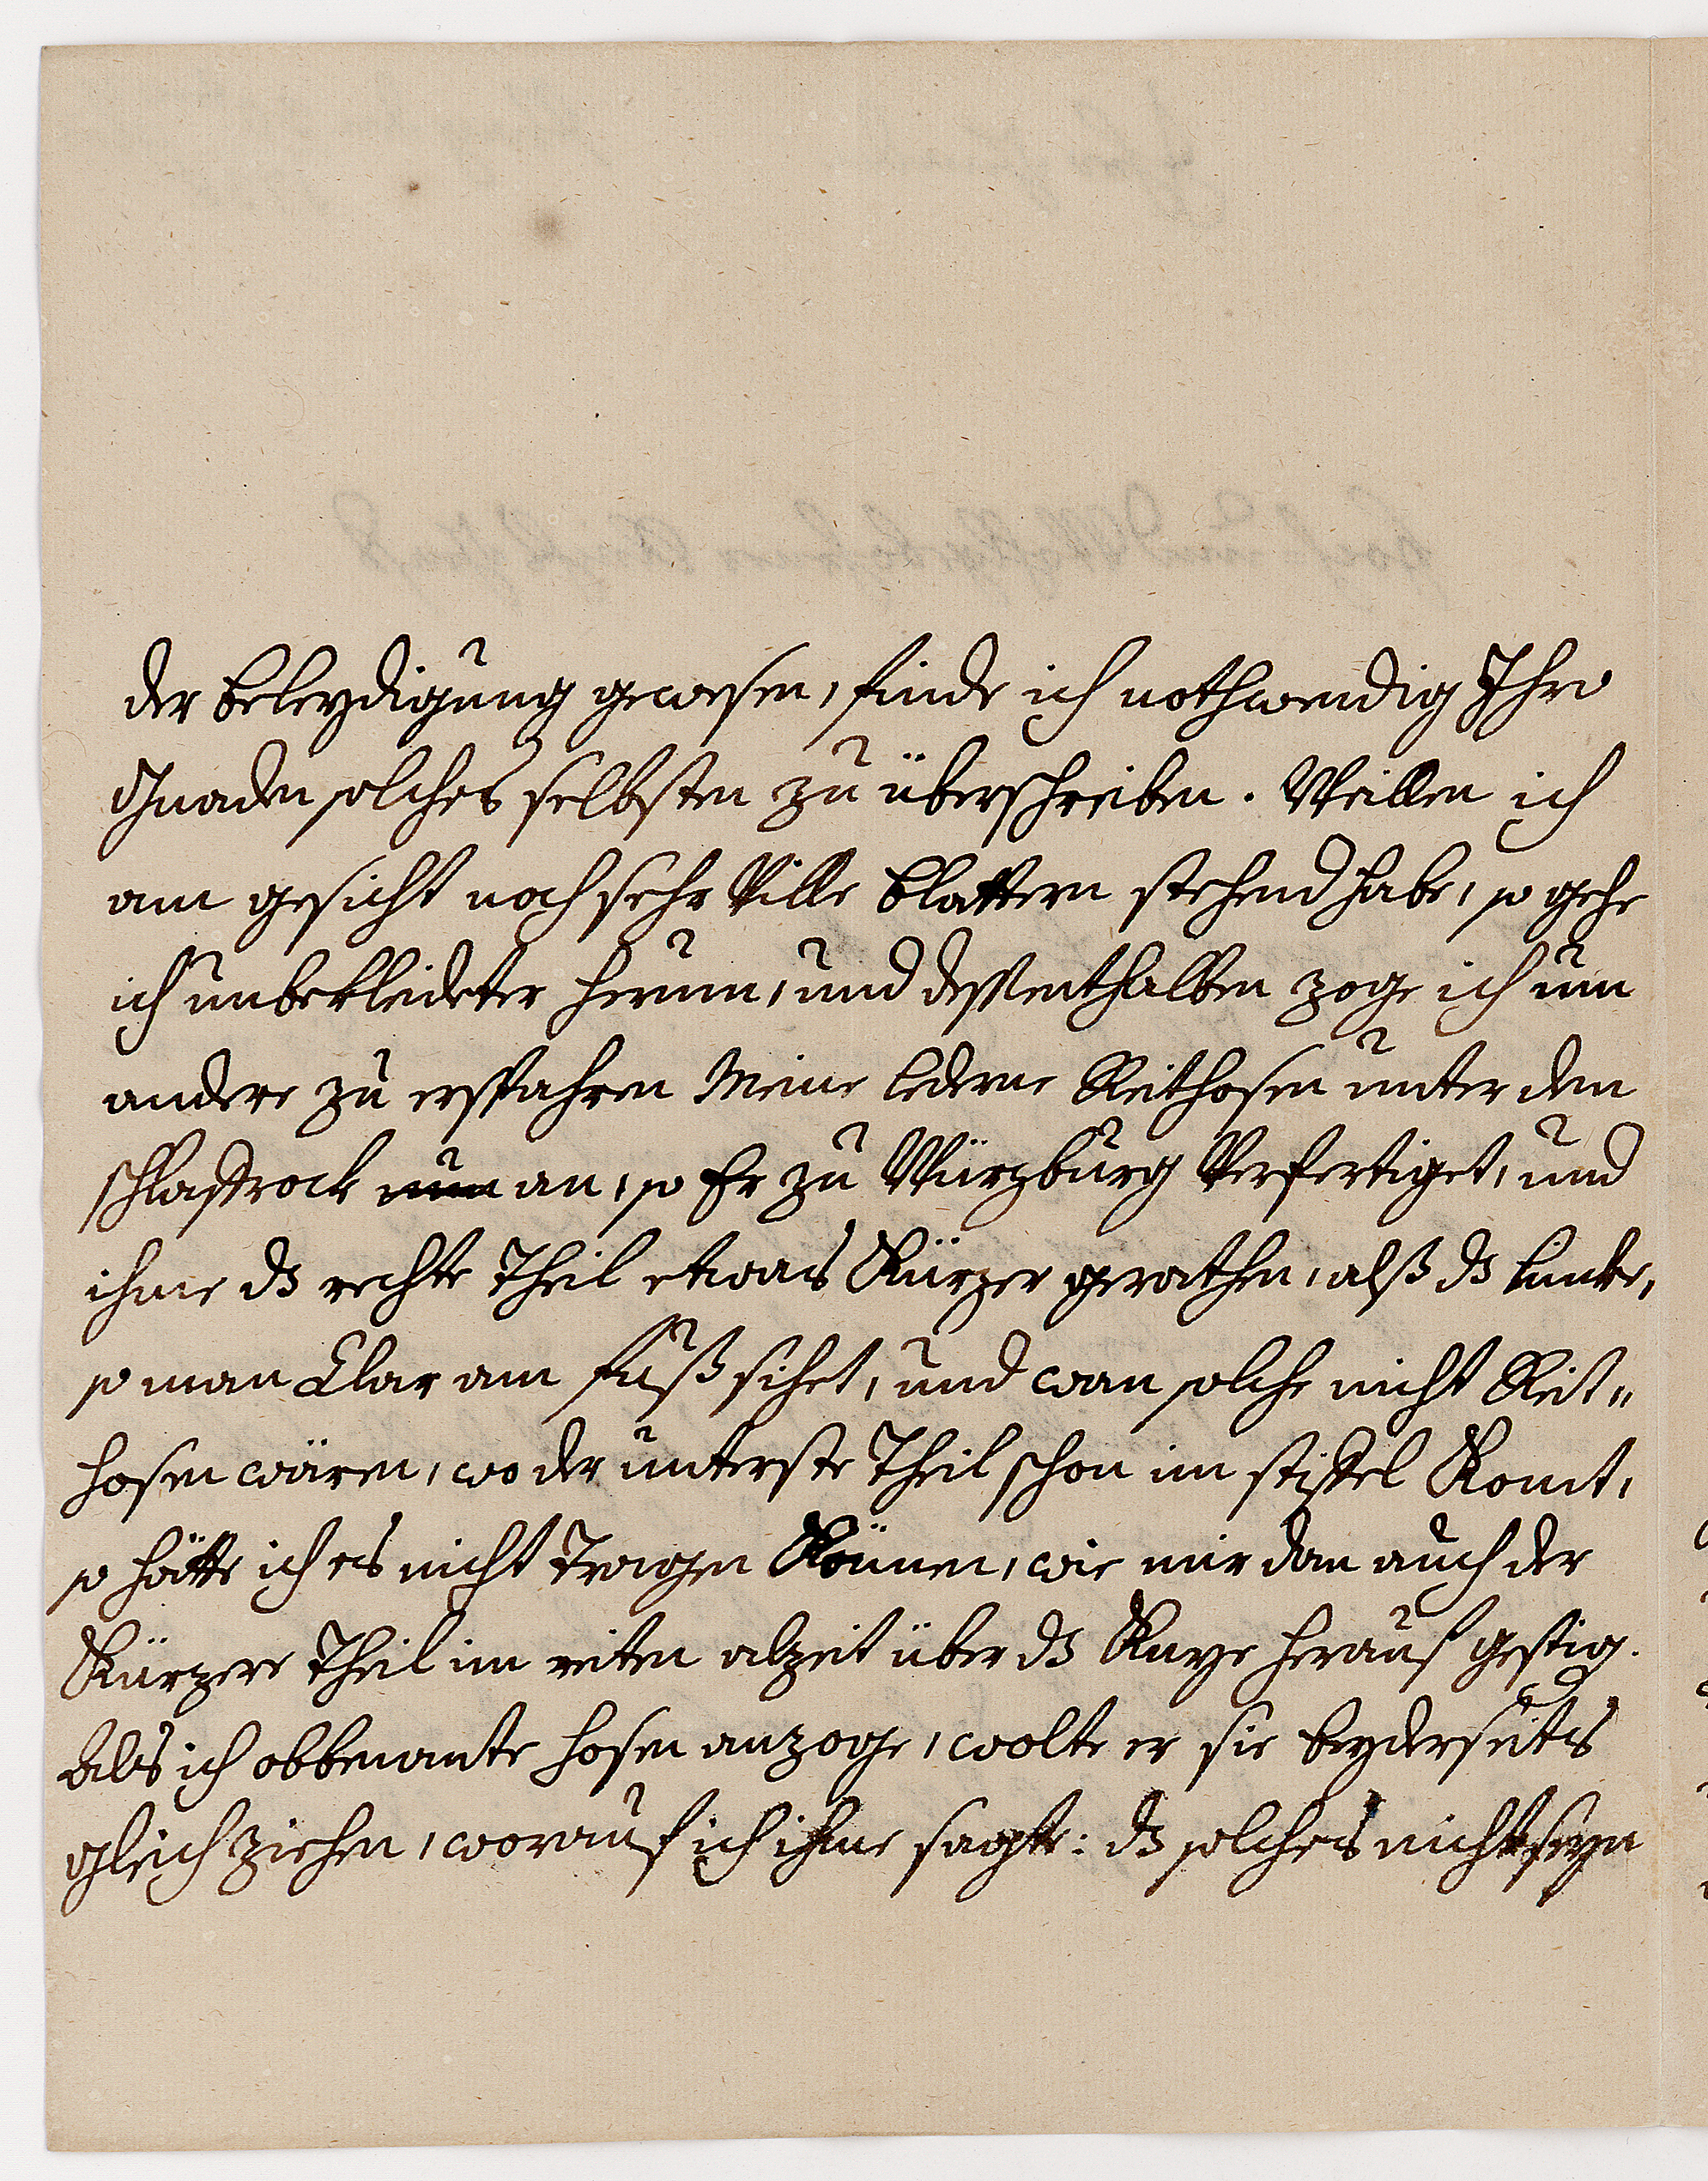 der beleydigung gewesen, finde ich nothwendig Ihro
Gnaden solches selbsten zu überschreiben. Weillen ich
am gesicht noch sehr Ville blattern stehend habe, so gehe
ich unbekleideter herum, und dessenthalben zoge ich um
andere zu erspahren Meine lederne Reithosen unter dem
schlaffrock nun an, so Er zu Würzburg Verfertiget, und
ihme dz rechte Theil etwas Kürzer gerathen, alß dz lincke,
so man Clar am fuß sihet, und wan solche nicht Reit„
hosen wären, wo der unterste Theil schon im stiffel Komt,
so hätte ich es nicht Tragen Können, wie mir dan auch der
Kürzere Theil im reiten alzeit über dz Knye herauf gestig.
Als ich obbenante hosen anzoge, wolte er sie beyderseits
gleich ziehen, worauf ich ihme sagte: dz solches nicht seyn